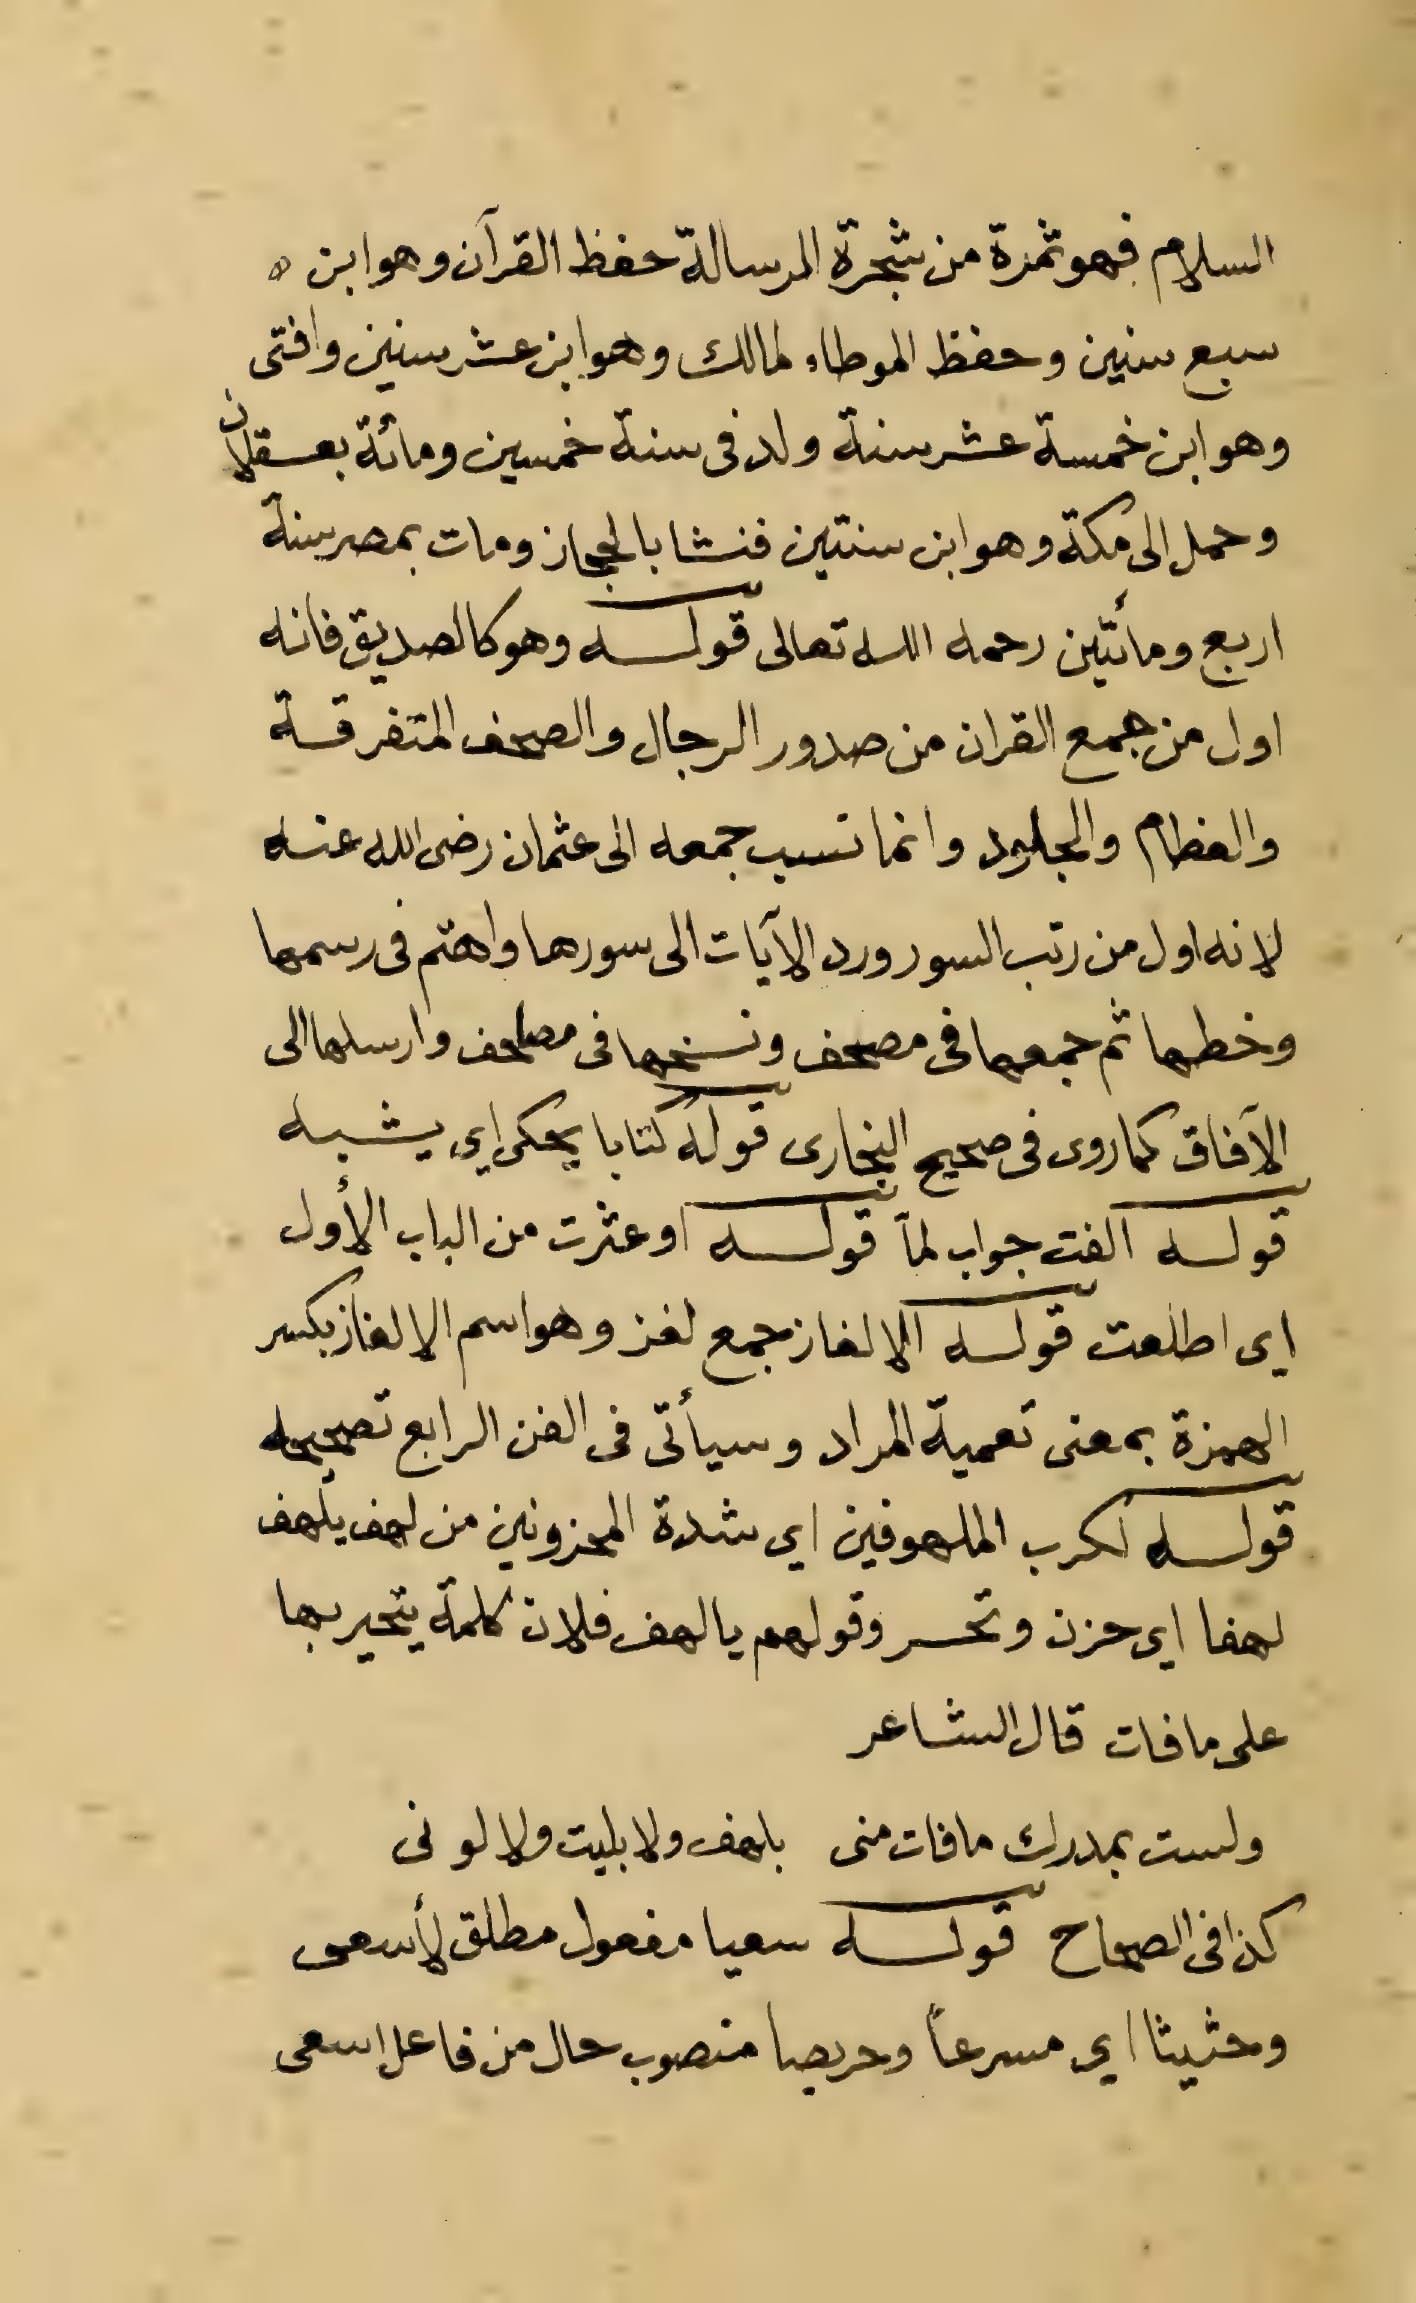 السلام فهو ثمرة من شجرة الرسالة حفظ القرآن وهو ابن
سبع سنين وحفظ الموطاء لمالك وهو ابن عشر سنين وافتى
وهو ابن خمسة عشر سنة ولد فى سنة خمسين ومائة بعسقلان
وحمل الى مكة وهو ابن سنتين فنشا بالحجاز ومات بمصر سنة
اربع ومأتين رحمه الله تعالى قوله وهو كالصديق فانه
اول من جمع القران من صدور الرجال والصحف المتفرقة
والعظام والجلود وانما نسب جمعه الى عثمان رضى الله عنه
لانه اول من رتب السور ورد الآيات الى سورها واهتم فى رسمها
وخطها ثم جمعها فى مصحف ونسخها فى مصاحف وارسلها الى
الآفاق كما روى فى صحيح البخارى قوله كتابا يحكى اى يشبه
قوله الفت جواب لمآ قوله او عثرت من الباب الأول
اى اطلعت قوله الالغاز جمع لغز وهو اسم الالغاز بكسر
الهمزة بمعنى تعمية المراد وسيأتى فى الفن الرابع تصحيحه
قوله لكرب الملهوفين اى شدة المحزونين من لهف يلهف
لهفا اى حزن وتحسر وقولهم يالهف فلان كلمة يتحير بها
على مافات قال الشاعر
ولست بمدرك مافات منى بلهف ولا بليت ولا لو نى
كذا فى الصحاح قوله سعيا مفعول مطلق لأسعى
وحثيثا اي مسرعاً وحريصا منصوب حال من فاعل اسعى